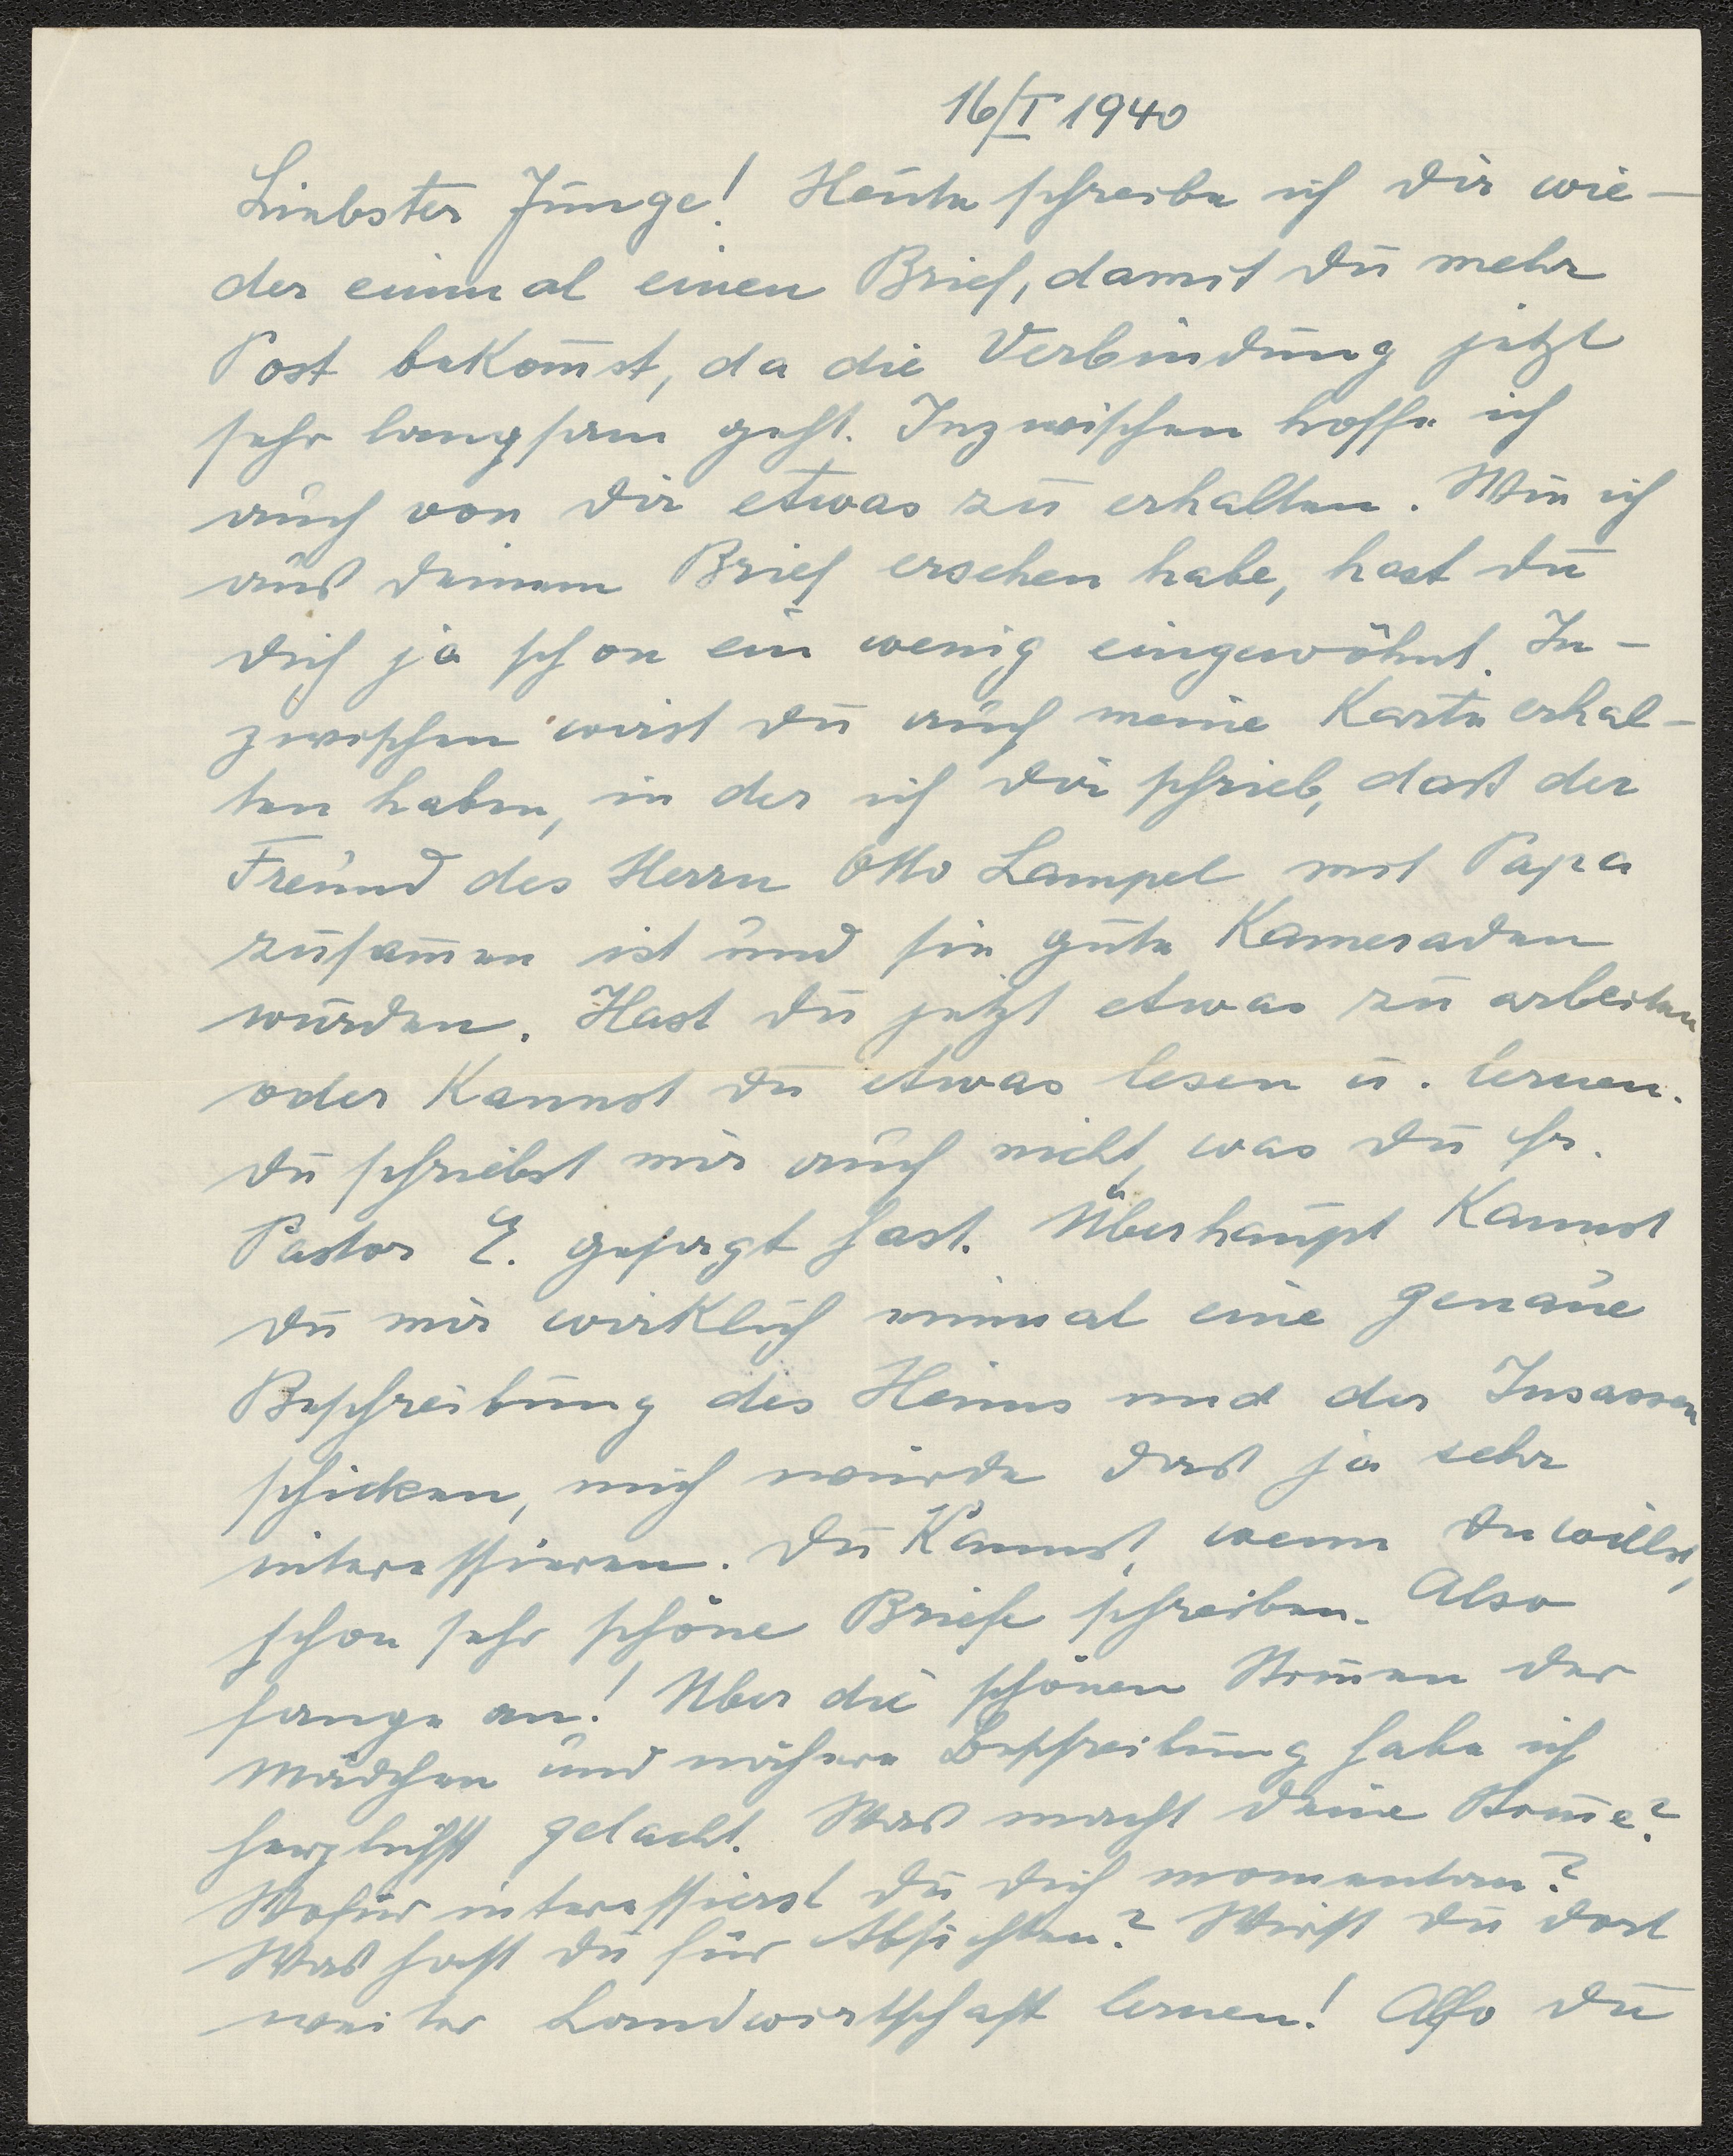 16/I 1940
Liebster Junge! Heute schreibe ich dir wie-
der einmal einen Brief, damit du mehr
Post bekom̅st, da die Verbindung jetzt
sehr langsam geht. Inzwischen hoffe ich
auch von dir etwas zu erhalten. Wie ich
aus deinem Brief ersehen habe, hast du
dich ja schon ein wenig eingewöhnt. In-
zwischen wirst du auch meine Karte erhal-
ten haben, in der ich dir schrieb, dass der
Freund des Herrn Otto Lampel mit Papa
zusam̅en ist und sie gute Kameraden
wurden. Hast du jetzt etwas zu arbeiten
oder kannst du etwas lesen u. lernen.
du schriebst mir auch nicht, was du Hr.
Pastor E. gesagt hast. Überhaupt kannst
du mir wirklich einmal eine genaue
Beschreibung des Heims und der Insassen
schicken, mich würde das ja sehr
interessieren. du kannst, wenn du willst,
schon sehr schöne Briefe schreiben. Also
fange an! Über die schönen Namen der
Mädchen und nähere Beschreibung habe ich
herzlichst gelacht. Was macht deine
Wofür interessierst du dich momentan?
Was hast du für Absichten? Wirst du dort
weiter Landwirtschaft lernen! Also du